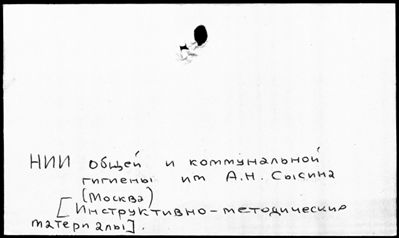 НИИ общей и коммунальной
гигиены им А.Н. Сысина
(Москва)
[Инструктивно-методические
материалы].